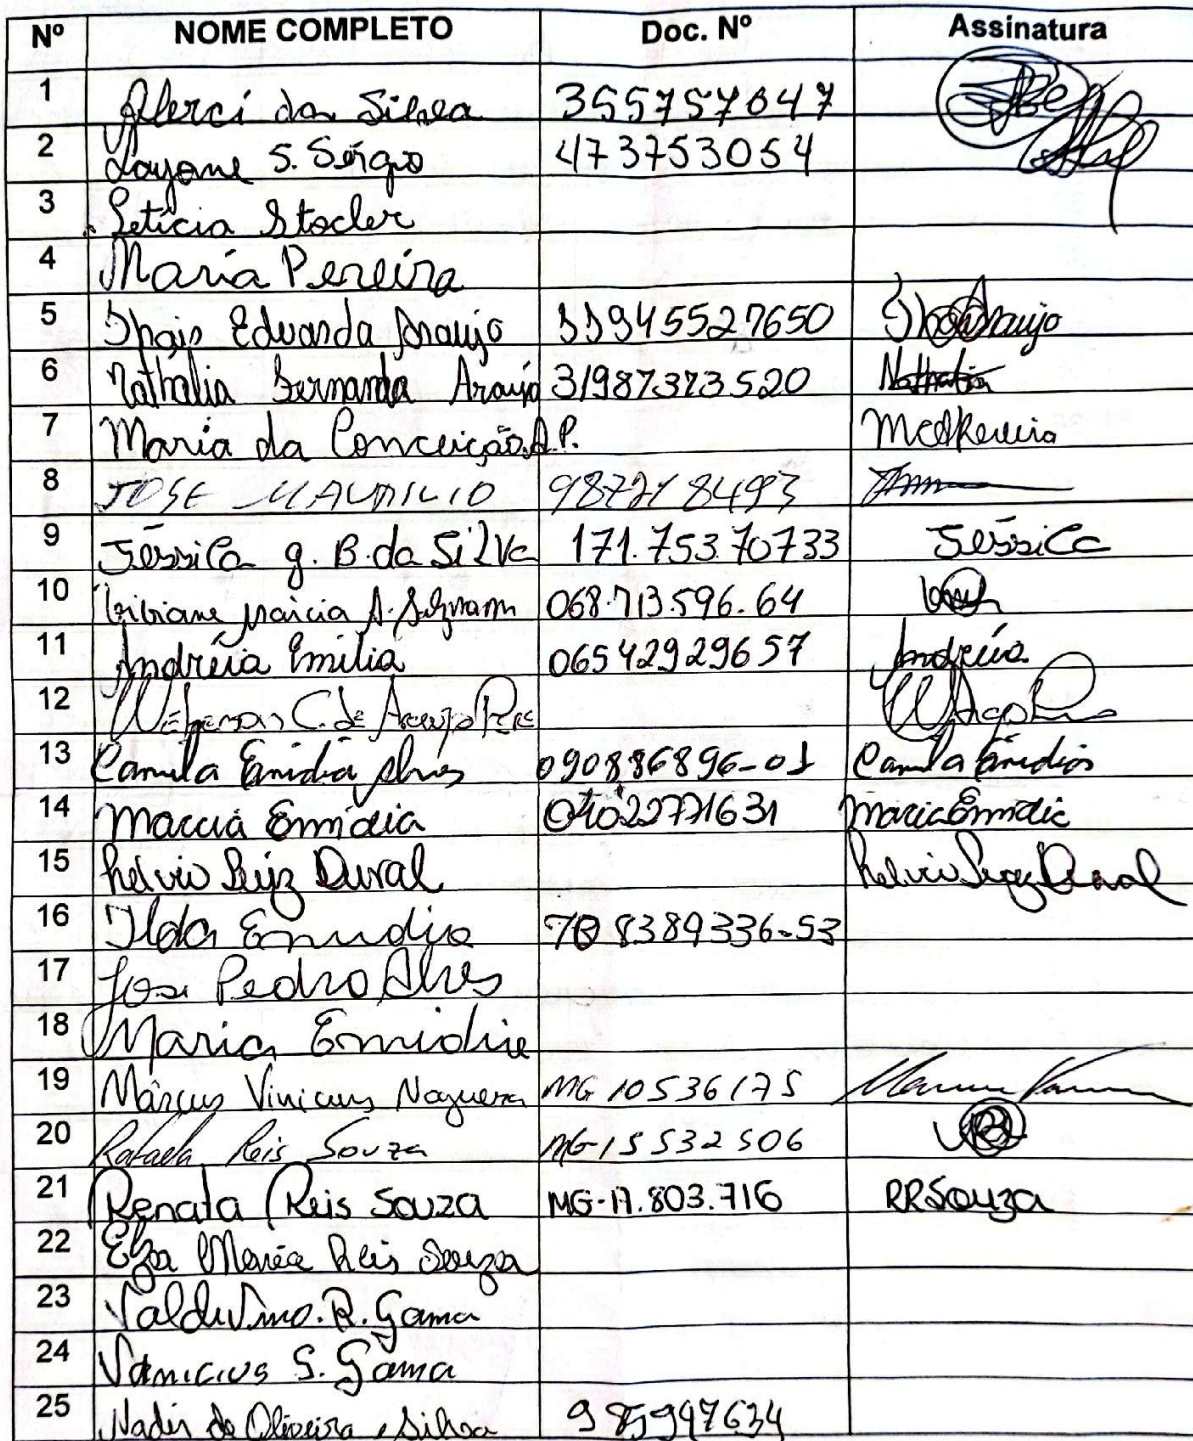 Nº NOME COMPLETO Doc. Nº Assinatura
1 Alerci da Silva 355757647
2 Layane S. Sérgio 473753054
3 Letícia Stocler
4 Maria Pereira
5 Thais Eduarda Araujo 33945527650 Araujo
6 Nathalia Fernanda Araujo 31987373520 Nathalia
7 Maria da Conceição A.P. MCAPereira
8 JOSE MAURILIO 9877184493
9 Jéssica g. B. da Silva 171.753.70733 Jéssica
10 Bibiane Marcia A. 068.713.596.64
11 Andréia Emília 06542929657 Andréia
12 C. de Araujo
13 Camila Emidia Alves 090886896-01 Camila Emidia
14 Marcia Emidia 04022771631 Marcia Emidia
15 Helvio Luiz Duval Helvio Luiz Duval
16 Ilda Emidia 708389336-53
17 Jose Pedro Alves
18 Maria Emidia
19 Marcus Vinicius Noguera MG 10536175
20 Rafaela Reis Souza MG-15532506
21 Renata Reis Souza MG-17.803.716 RRSouza
22 Elza Maria Reis Souza
23 Valdivino. R. Gama
24 Vinicius S. Gama
25 Nadir de Oliveira e Silva 985947634